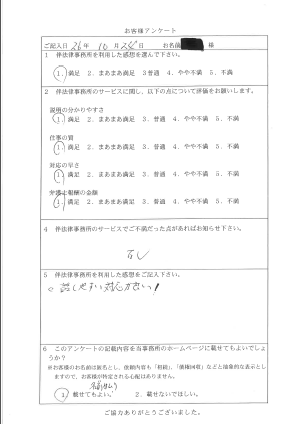 お客様アンケート
ご記入日 26年 10月 25日 お名前 様
1 伴法律事務所を利用した感想を選んで下さい。
1．満足 2．まあまあ満足 3 普通 4．やや不満 5．不満
2 伴法律事務所のサービスに関し、以下の点について評価をお願いします。
説明の分かりやすさ
1．満足 2．まあまあ満足 3．普通 4．やや不満 5．不満
仕事の質
1．満足 2．まあまあ満足 3．普通 4．やや不満 5．不満
対応の早さ
1．満足 2．まあまあ満足 3．普通 4．やや不満 5．不満
弁護士報酬の金額
1．満足 2．まあまあ満足 3．普通 4．やや不満 5．不満
4 伴法律事務所のサービスでご不満だった点があればお知らせ下さい。
なし
5 伴法律事務所を利用した感想をご記入下さい。
話しやすい対応
6 このアンケートの記載内容を当事務所のホームページに載せてもよいでしょ
うか？
※お客様のお名前は匿名とし、依頼内容も「相続」「債権回収」などと抽象的な表示とし
ますので、お客様が特定される心配はありません。
1．載せてもよい。 2．載せないでほしい。
ご協力ありがとうございました。